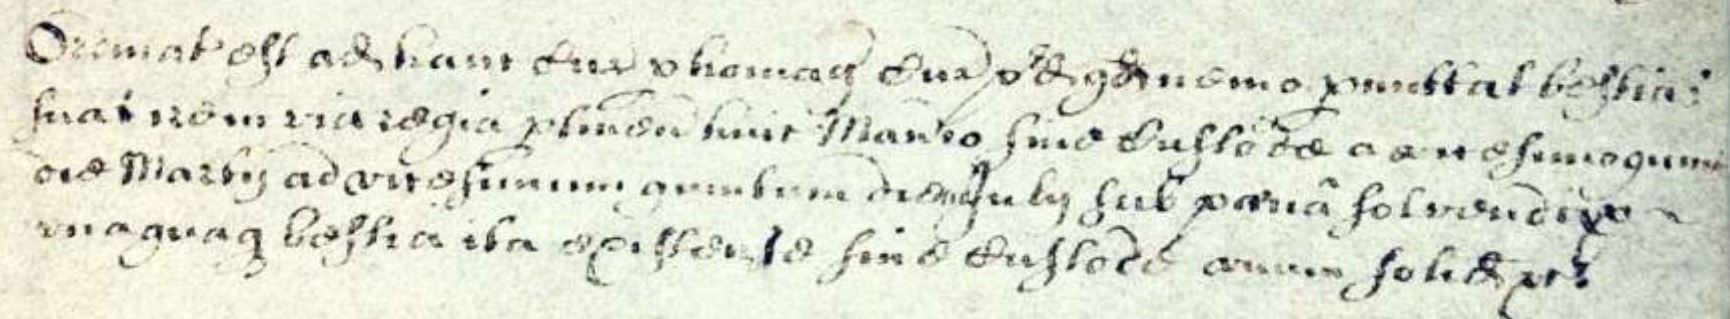 Ordinat' est ad hanc Cur' p homag' Cur' p'd' qd nemo pmittat bestias
suas in via regia ptinen huic Man'io sine Custode a vicesimo quinto
die Martij ad vicesimum quintum diem Julij sub pœnâ solvendi p
unaquaq bestia ita existen'te sine Custode unum solid'